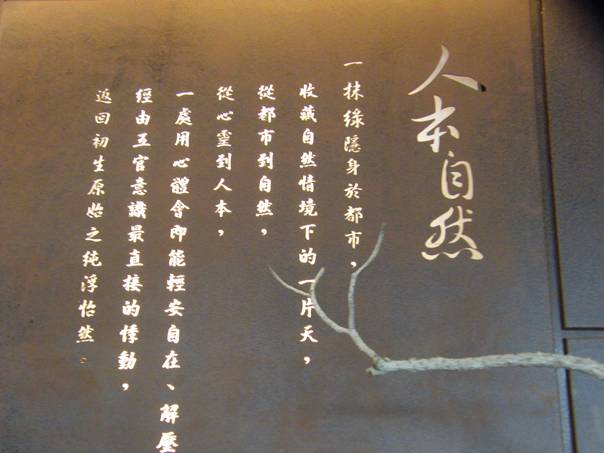 人本自然
一抹綠隱身於都市，
收藏自然情境下的一片天，
從都市到自然，
從心靈到人本，
一處用心體會即能輕安自在、解壓
經由五官意識最直接的悸動，
返回初生原始之純淨怡然。